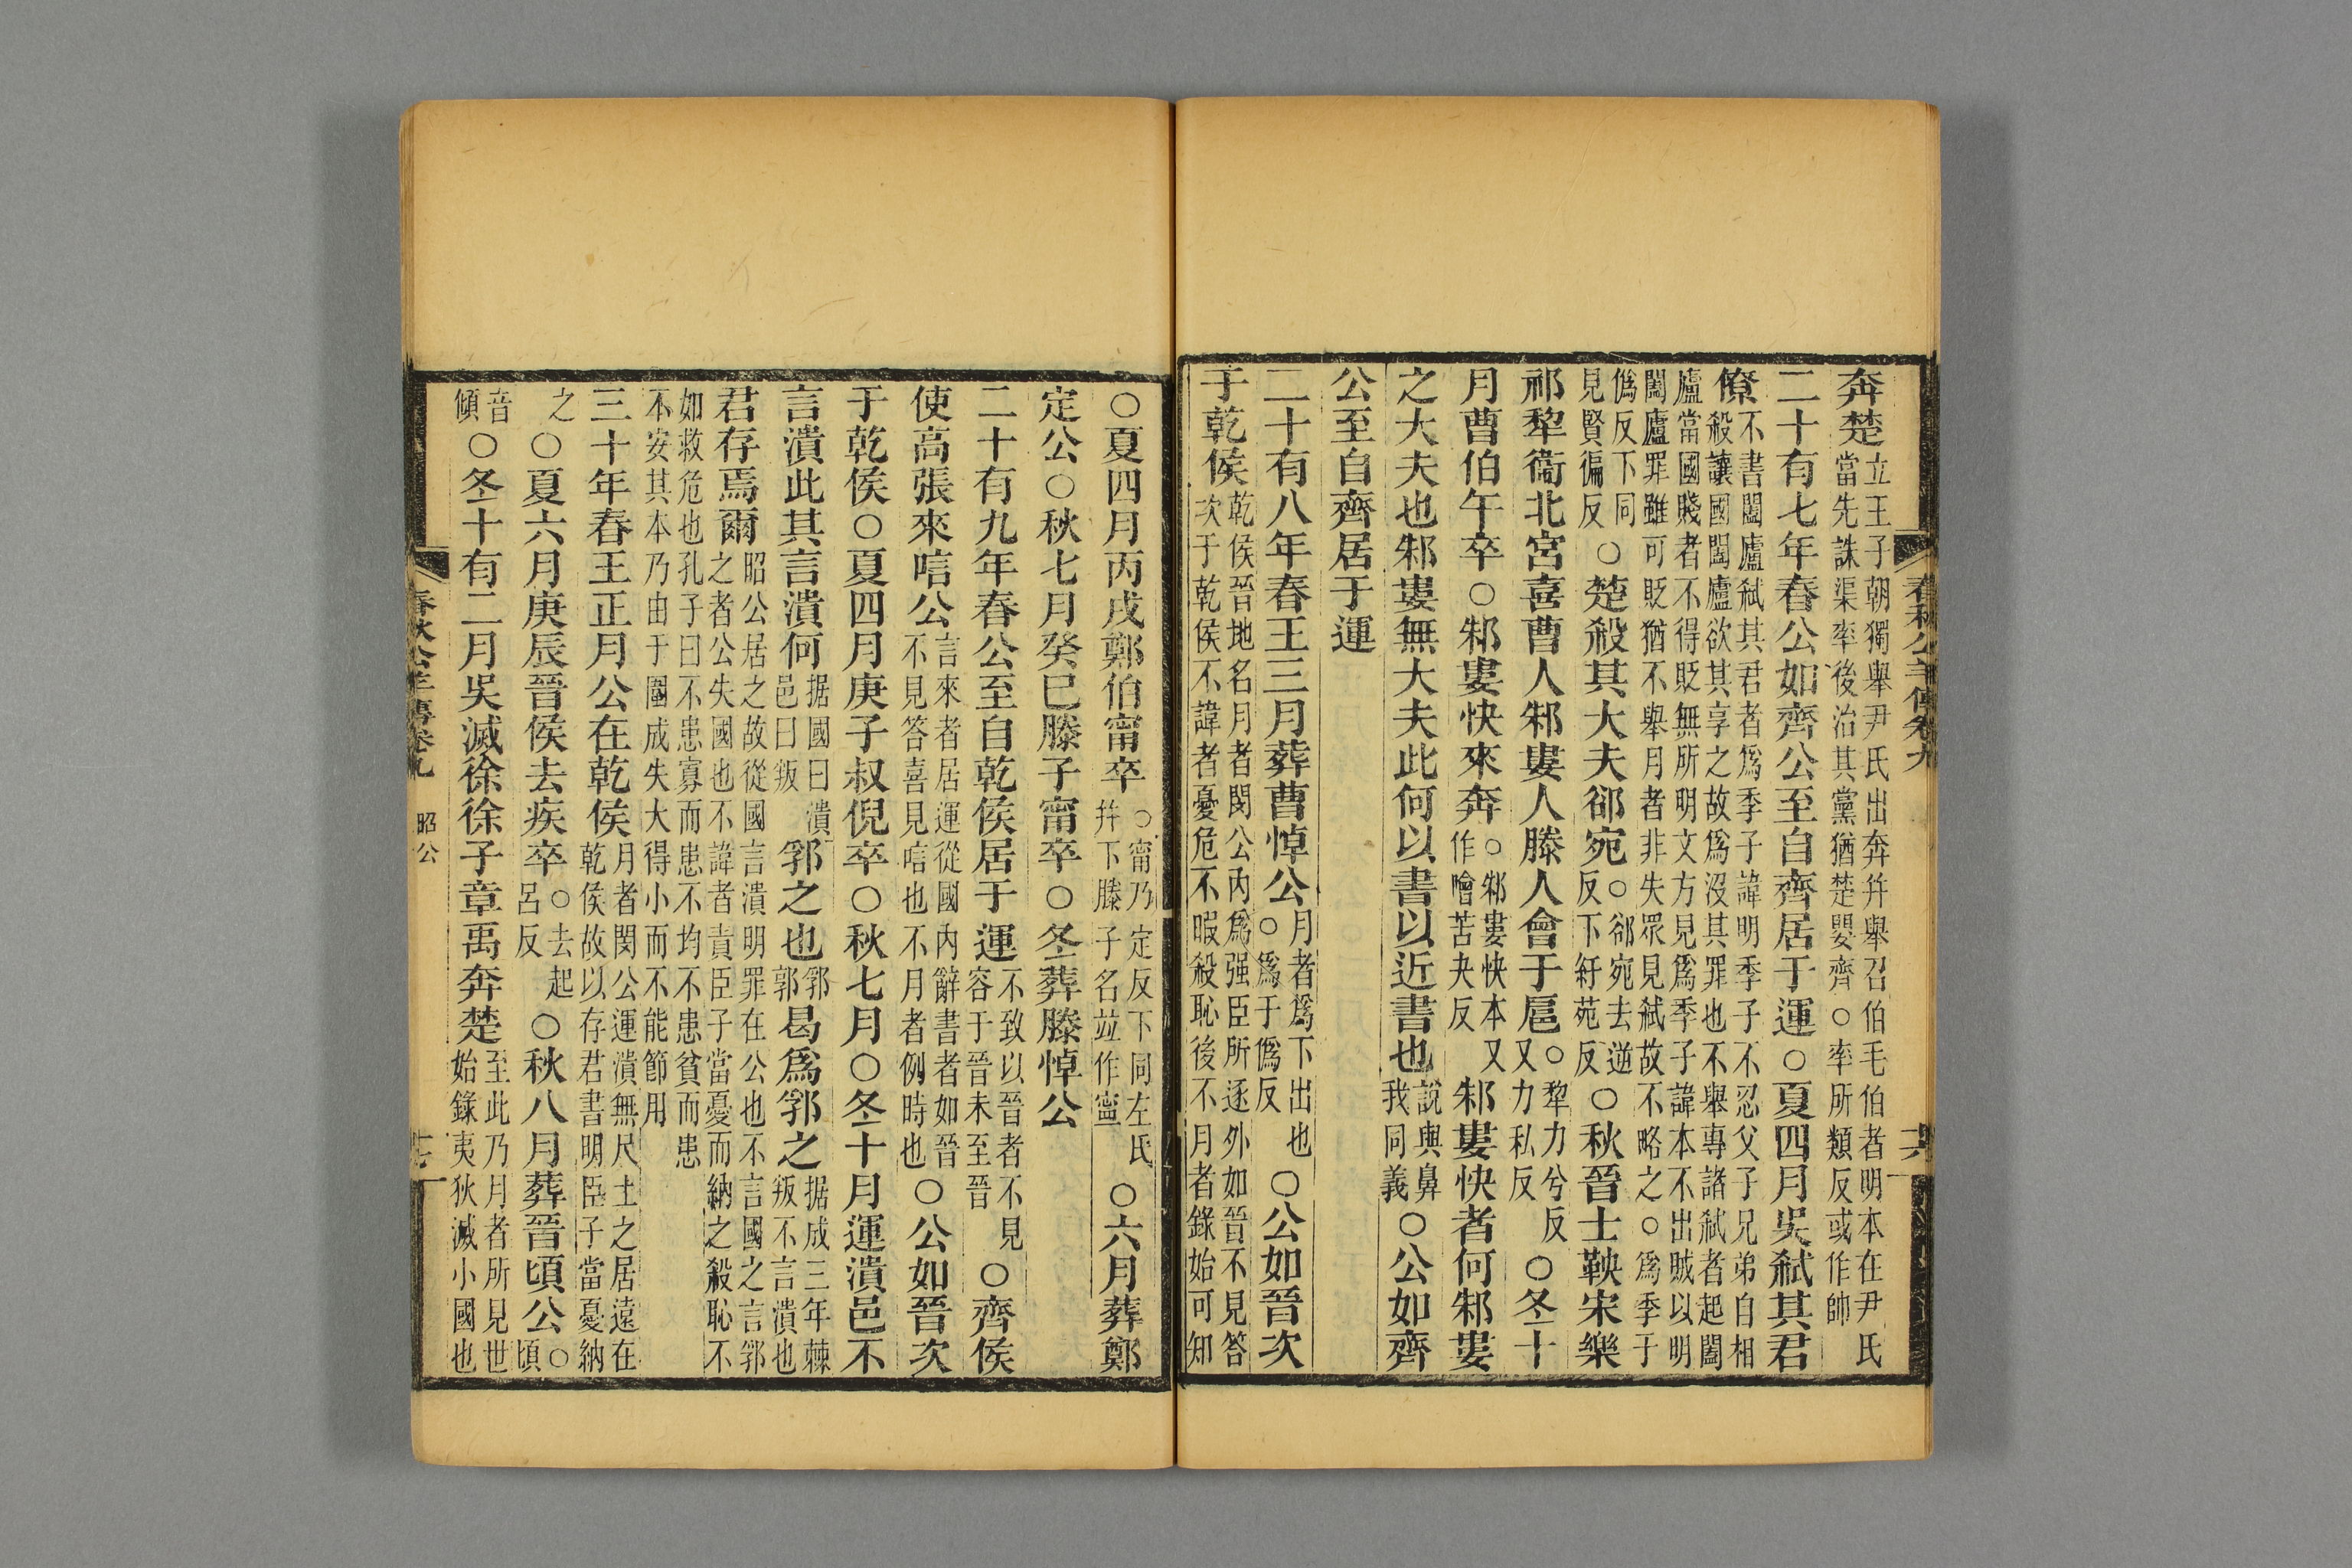 春秋公羊傳卷九 十六
奔楚立王子朝獨舉尹氏出奔并舉召伯毛伯者明本在尹氏當先誅渠率後治其黨猶楚嬰齊○率所類反或作帥
二十有七年春公如齊公至自齊居于運○夏四月吳弒其君
僚不書闔廬弒其君者爲季子諱明季子不忍父子兄弟自相殺讓國闔廬欲其享之故爲沒其罪也不舉專諸弒者起闔
廬當國賤者不得貶無所明文方見爲季子諱本不出賊以明闔廬罪雖可貶猶不舉月者非失眾見弒故不略之○爲季于
僞反下同見賢徧反○楚殺其大夫郤宛○郤宛去逆反下紆苑反○秋晉士鞅宋樂
祁犂衛北宮喜曹人邾婁人滕人會于扈○犂力兮反又力私反○冬十
月曹伯午卒○邾婁快來奔○邾婁快本又作噲苦夬反邾婁快者何邾婁
之大夫也邾婁無大夫此何以書以近書也說與鼻我同義○公如齊
公至自齊居于運
二十有八年春王三月葬曹悼公月者爲下出也○爲于僞反○公如晉次
于乾侯乾侯晉地名月者閔公內爲强臣所逐外如晉不見答次于乾侯不諱者憂危不暇殺恥後不月者錄始可知
○夏四月丙戌鄭伯甯卒○甯乃定反下同左氏并下滕子名竝作寧○六月葬鄭
定公○秋七月癸巳滕子甯卒○冬葬滕悼公
二十有九年春公至自乾侯居于運不致以晉者不見容于晉未至晉○齊侯
使高張來唁公言來者居運從國內辭書者如晉不見答喜見唁也不月者例時也○公如晉次
于乾侯○夏四月庚子叔倪卒○秋七月○冬十月運潰邑不
言潰此其言潰何据國曰潰邑曰叛郛之也郛郭曷爲郛之据成三年棘叛不言潰也
君存焉爾昭公居之故從國言潰明罪在公也不言國之言郛之者公失國也不諱者責臣子當憂而納之殺恥不
如救危也孔子曰不患寡而患不均不患貧而患不安其本乃由于圍成失大得小而不能節用
三十年春王正月公在乾侯月者閔公運潰無尺土之居遠在乾侯故以存君書明臣子當憂納
之○夏六月庚辰晉侯去疾卒○去起呂反○秋八月葬晉頃公○頃
音傾○冬十有二月吳滅徐徐子章禹奔楚至此乃月者所見世始錄夷狄滅小國也
春秋公羊傳卷九 昭公 十七